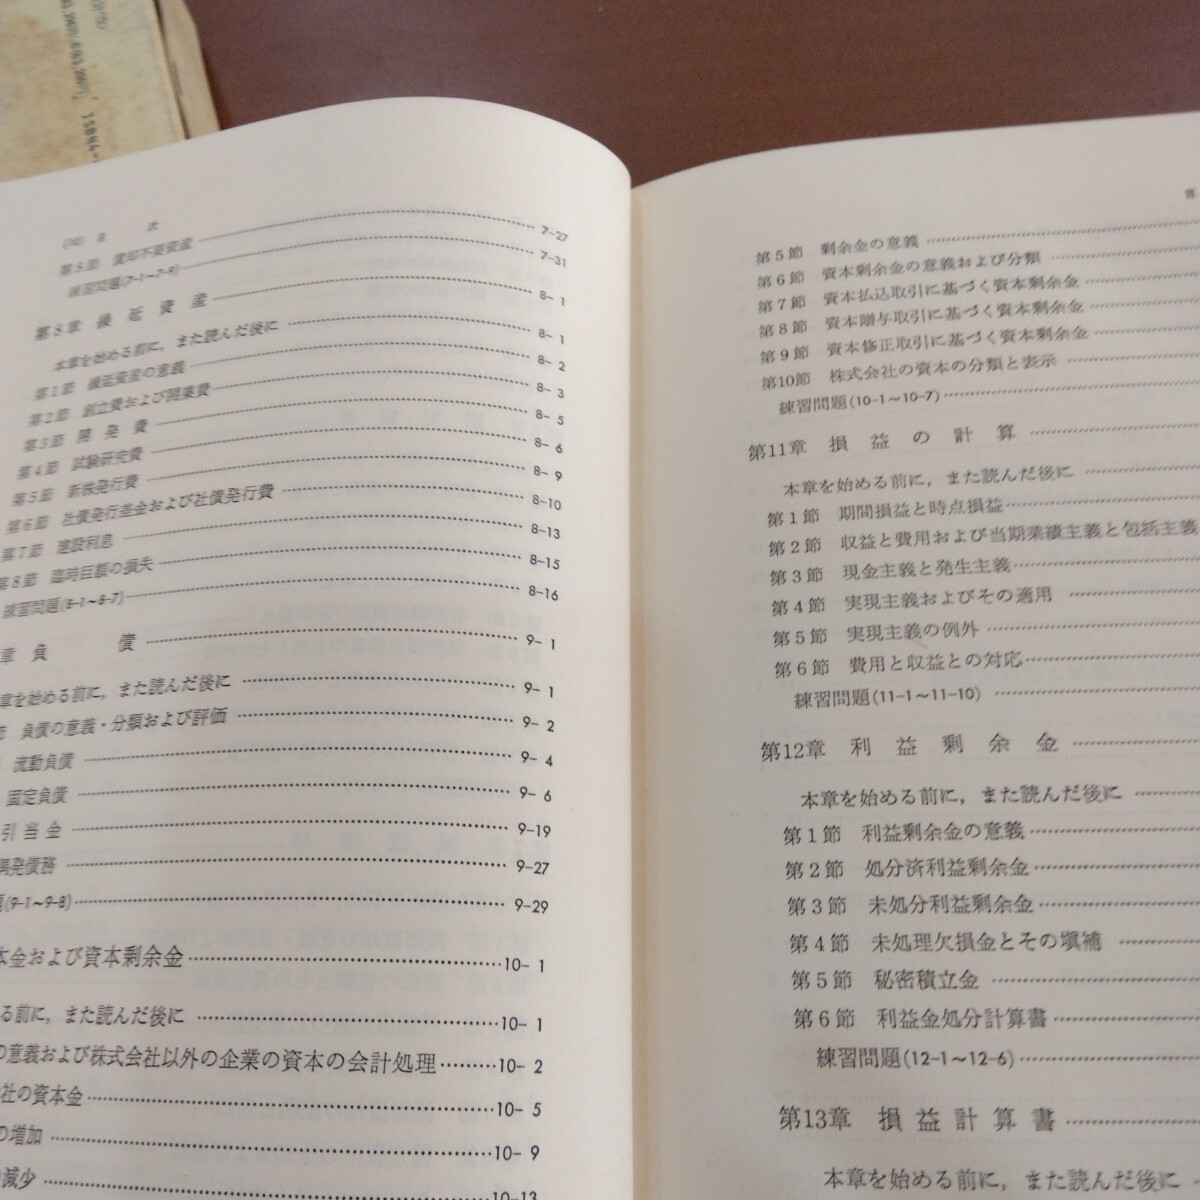 ISBN4-
(10) 目 次
第8節 償却不要資産 7-27
練習問題(7-1~7-9) 7-31
第8章 繰延資産 8-1
本章を始める前に,また読んだ後に 8-1
第1節 繰延資産の意義 8-2
第2節 創立費および開業費 8-3
第3節 開発費 8-5
第4節 試験研究費 8-6
第5節 新株発行費 8-9
第6節 社債発行差金および社債発行費 8-10
第7節 建設利息 8-13
第8節 臨時巨額の損失 8-15
練習問題(8-1~8-7) 8-16
章 負債 9-1
章を始める前に,また読んだ後に 9-1
負債の意義・分類および評価 9-2
流動負債 9-4
固定負債 9-6
引当金 9-19
偶発債務 9-27
(9-1~9-8) 9-29
本金および資本剰余金 10-1
る前に,また読んだ後に 10-1
の意義および株式会社以外の企業の資本の会計処理 10-2
社の資本金 10-5
の増加 10-9
減少 10-13
第5節 剰余金の意義
第6節 資本剰余金の意義および分類
第7節 資本払込取引に基づく資本剰余金
第8節 資本贈与取引に基づく資本剰余金
第9節 資本修正取引に基づく資本剰余金
第10節 株式会社の資本の分類と表示
練習問題(10-1~10-7)
第11章 損益の計算
本章を始める前に,また読んだ後に
第1節 期間損益と時点損益
第2節 収益と費用および当期業績主義と包括主義
第3節 現金主義と発生主義
第4節 実現主義およびその適用
第5節 実現主義の例外
第6節 費用と収益との対応
練習問題(11-1~11-10)
第12章 利益剰余金
本章を始める前に,また読んだ後に
第1節 利益剰余金の意義
第2節 処分済利益剰余金
第3節 未処分利益剰余金
第4節 未処理欠損金とその塡補
第5節 秘密積立金
第6節 利益金処分計算書
練習問題(12-1~12-6)
第13章 損益計算書
本章を始める前に,また読んだ後に